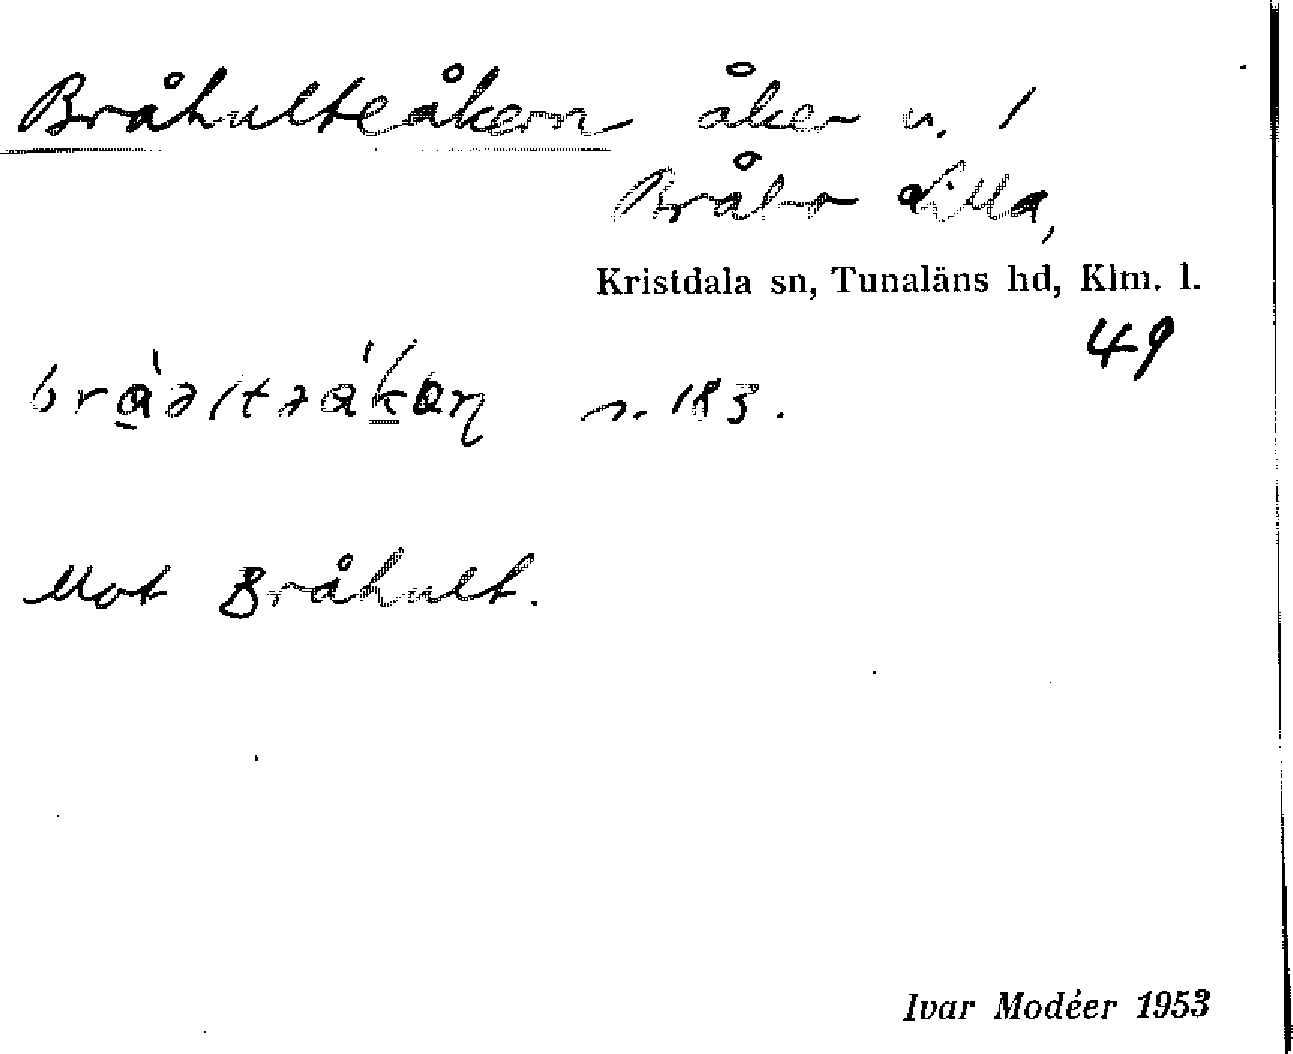 Bråhulteåkern åker n. 1
Bråbo Lilla,
Kristdala sn, Tunaläns hd, Klm. l.
49
n. 183.
Mot Bråhult.
Ivar Modéer 1953